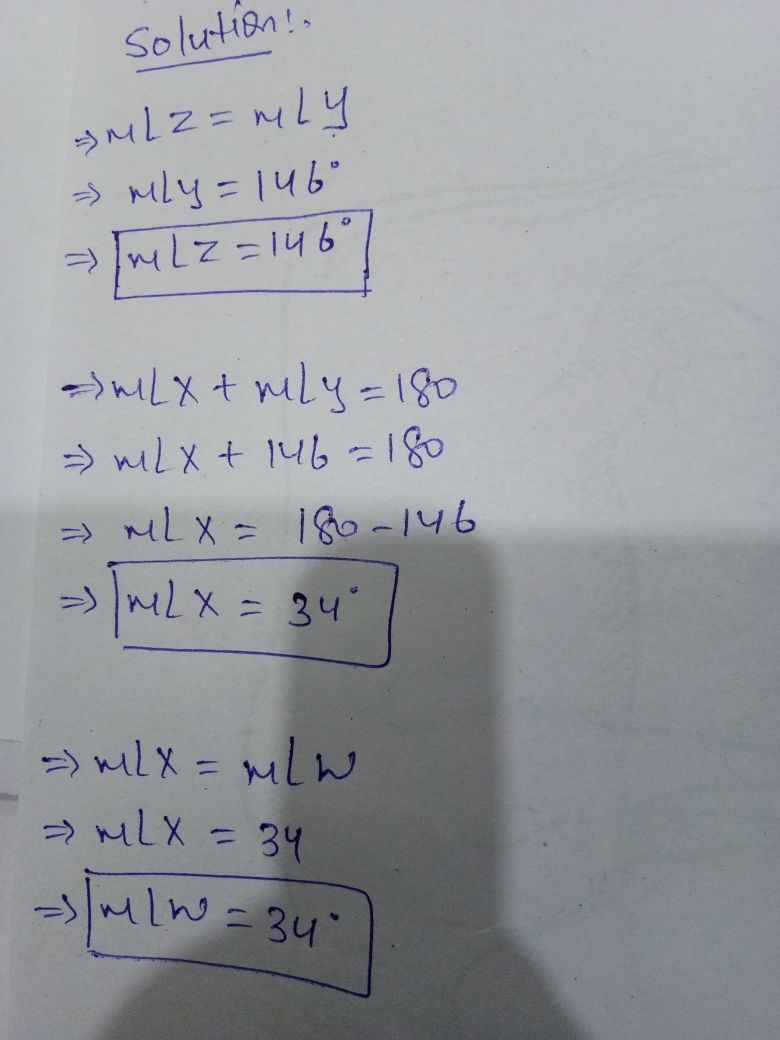 Solution:.
⇒ m∠Z = m∠Y
⇒ m∠y = 146°
⇒ m∠Z = 146°
⇒ m∠X + m∠y = 180
⇒ m∠X + 146 = 180
⇒ m∠X = 180 - 146
⇒ m∠X = 34°
⇒ m∠X = m∠W
⇒ m∠X = 34
⇒ m∠W = 34°